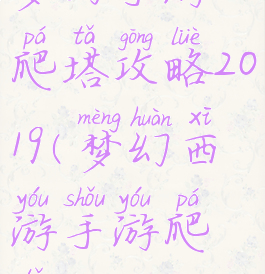 pá tǎ gōng lüè
爬塔攻略20
mèng huàn xī
19(梦幻西
yóu shǒu yóu pá
游手游爬